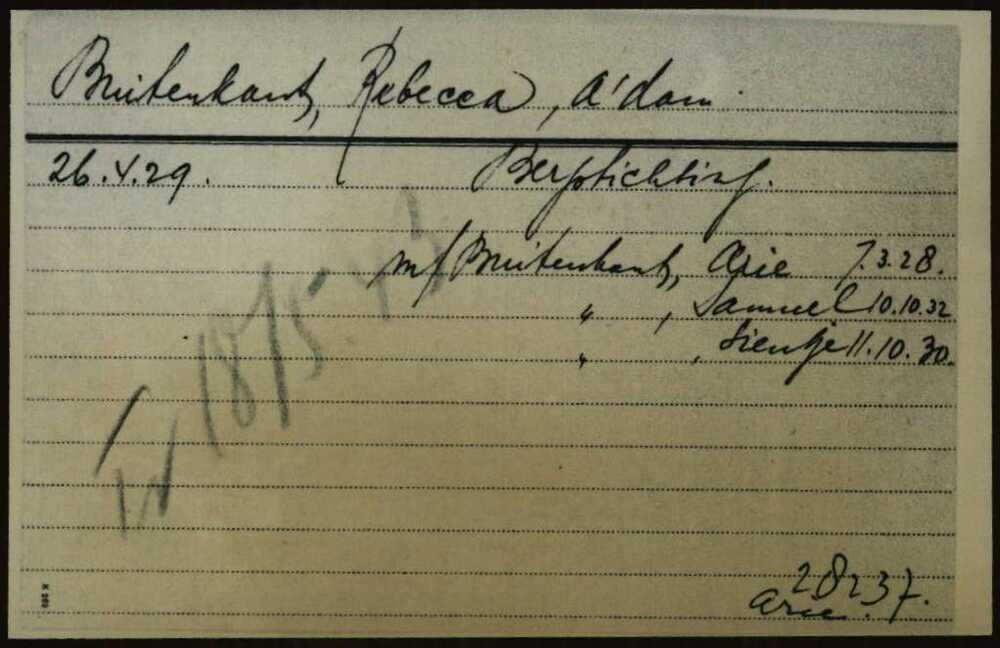 Buitenkant, Rebecca, A'dam.
26.4.29. Bergstichting.
m/ Buitenkant, Arie 7.3.28.
" , Samuel 10.10.32
" , Sientje 11.10.30.
W 18/5-43
28237.
Arie.
K 263